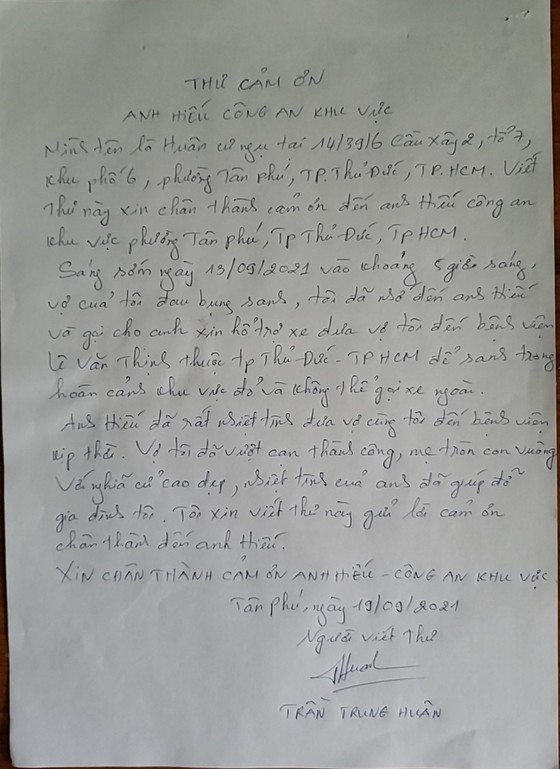 THƯ CẢM ƠN
ANH HIẾU CÔNG AN KHU VỰC
Mình tên là Huân cư ngụ tại 14/39/6 Cầu Xây 2, tổ 7,
khu phố 6, phường Tân phú, TP. Thủ Đức, TP. HCM. Viết
thư này xin chân thành cảm ơn đến anh Hiếu công an
khu vực phường Tân phú, Tp Thủ Đức, TP HCM.
Sáng sớm ngày 13/09/2021 vào khoảng 5 giờ sáng,
vợ của tôi đau bụng sanh, tôi đã nhờ đến anh Hiếu
và gọi cho anh xin hỗ trợ xe đưa vợ tôi đến bệnh viện
Lê Văn Thịnh thuộc tp Thủ Đức - TP HCM để sanh trong
hoàn cảnh khu vực đỏ và không thể gọi xe ngoài.
Anh Hiếu đã rất nhiệt tình đưa vợ cùng tôi đến bệnh viện
kịp thời. Vợ tôi đã vượt cạn thành công, mẹ tròn con vuông
Với nghĩa cử cao đẹp, nhiệt tình của anh đã giúp đỡ
gia đình tôi. Tôi xin viết thư này gửi lời cảm ơn
chân thành đến anh Hiếu.
XIN CHÂN THÀNH CẢM ƠN ANH HIẾU - CÔNG AN KHU VỰC
Tân Phú, ngày 19/09/2021
Người viết thư
Huân
TRẦN TRUNG HUÂN